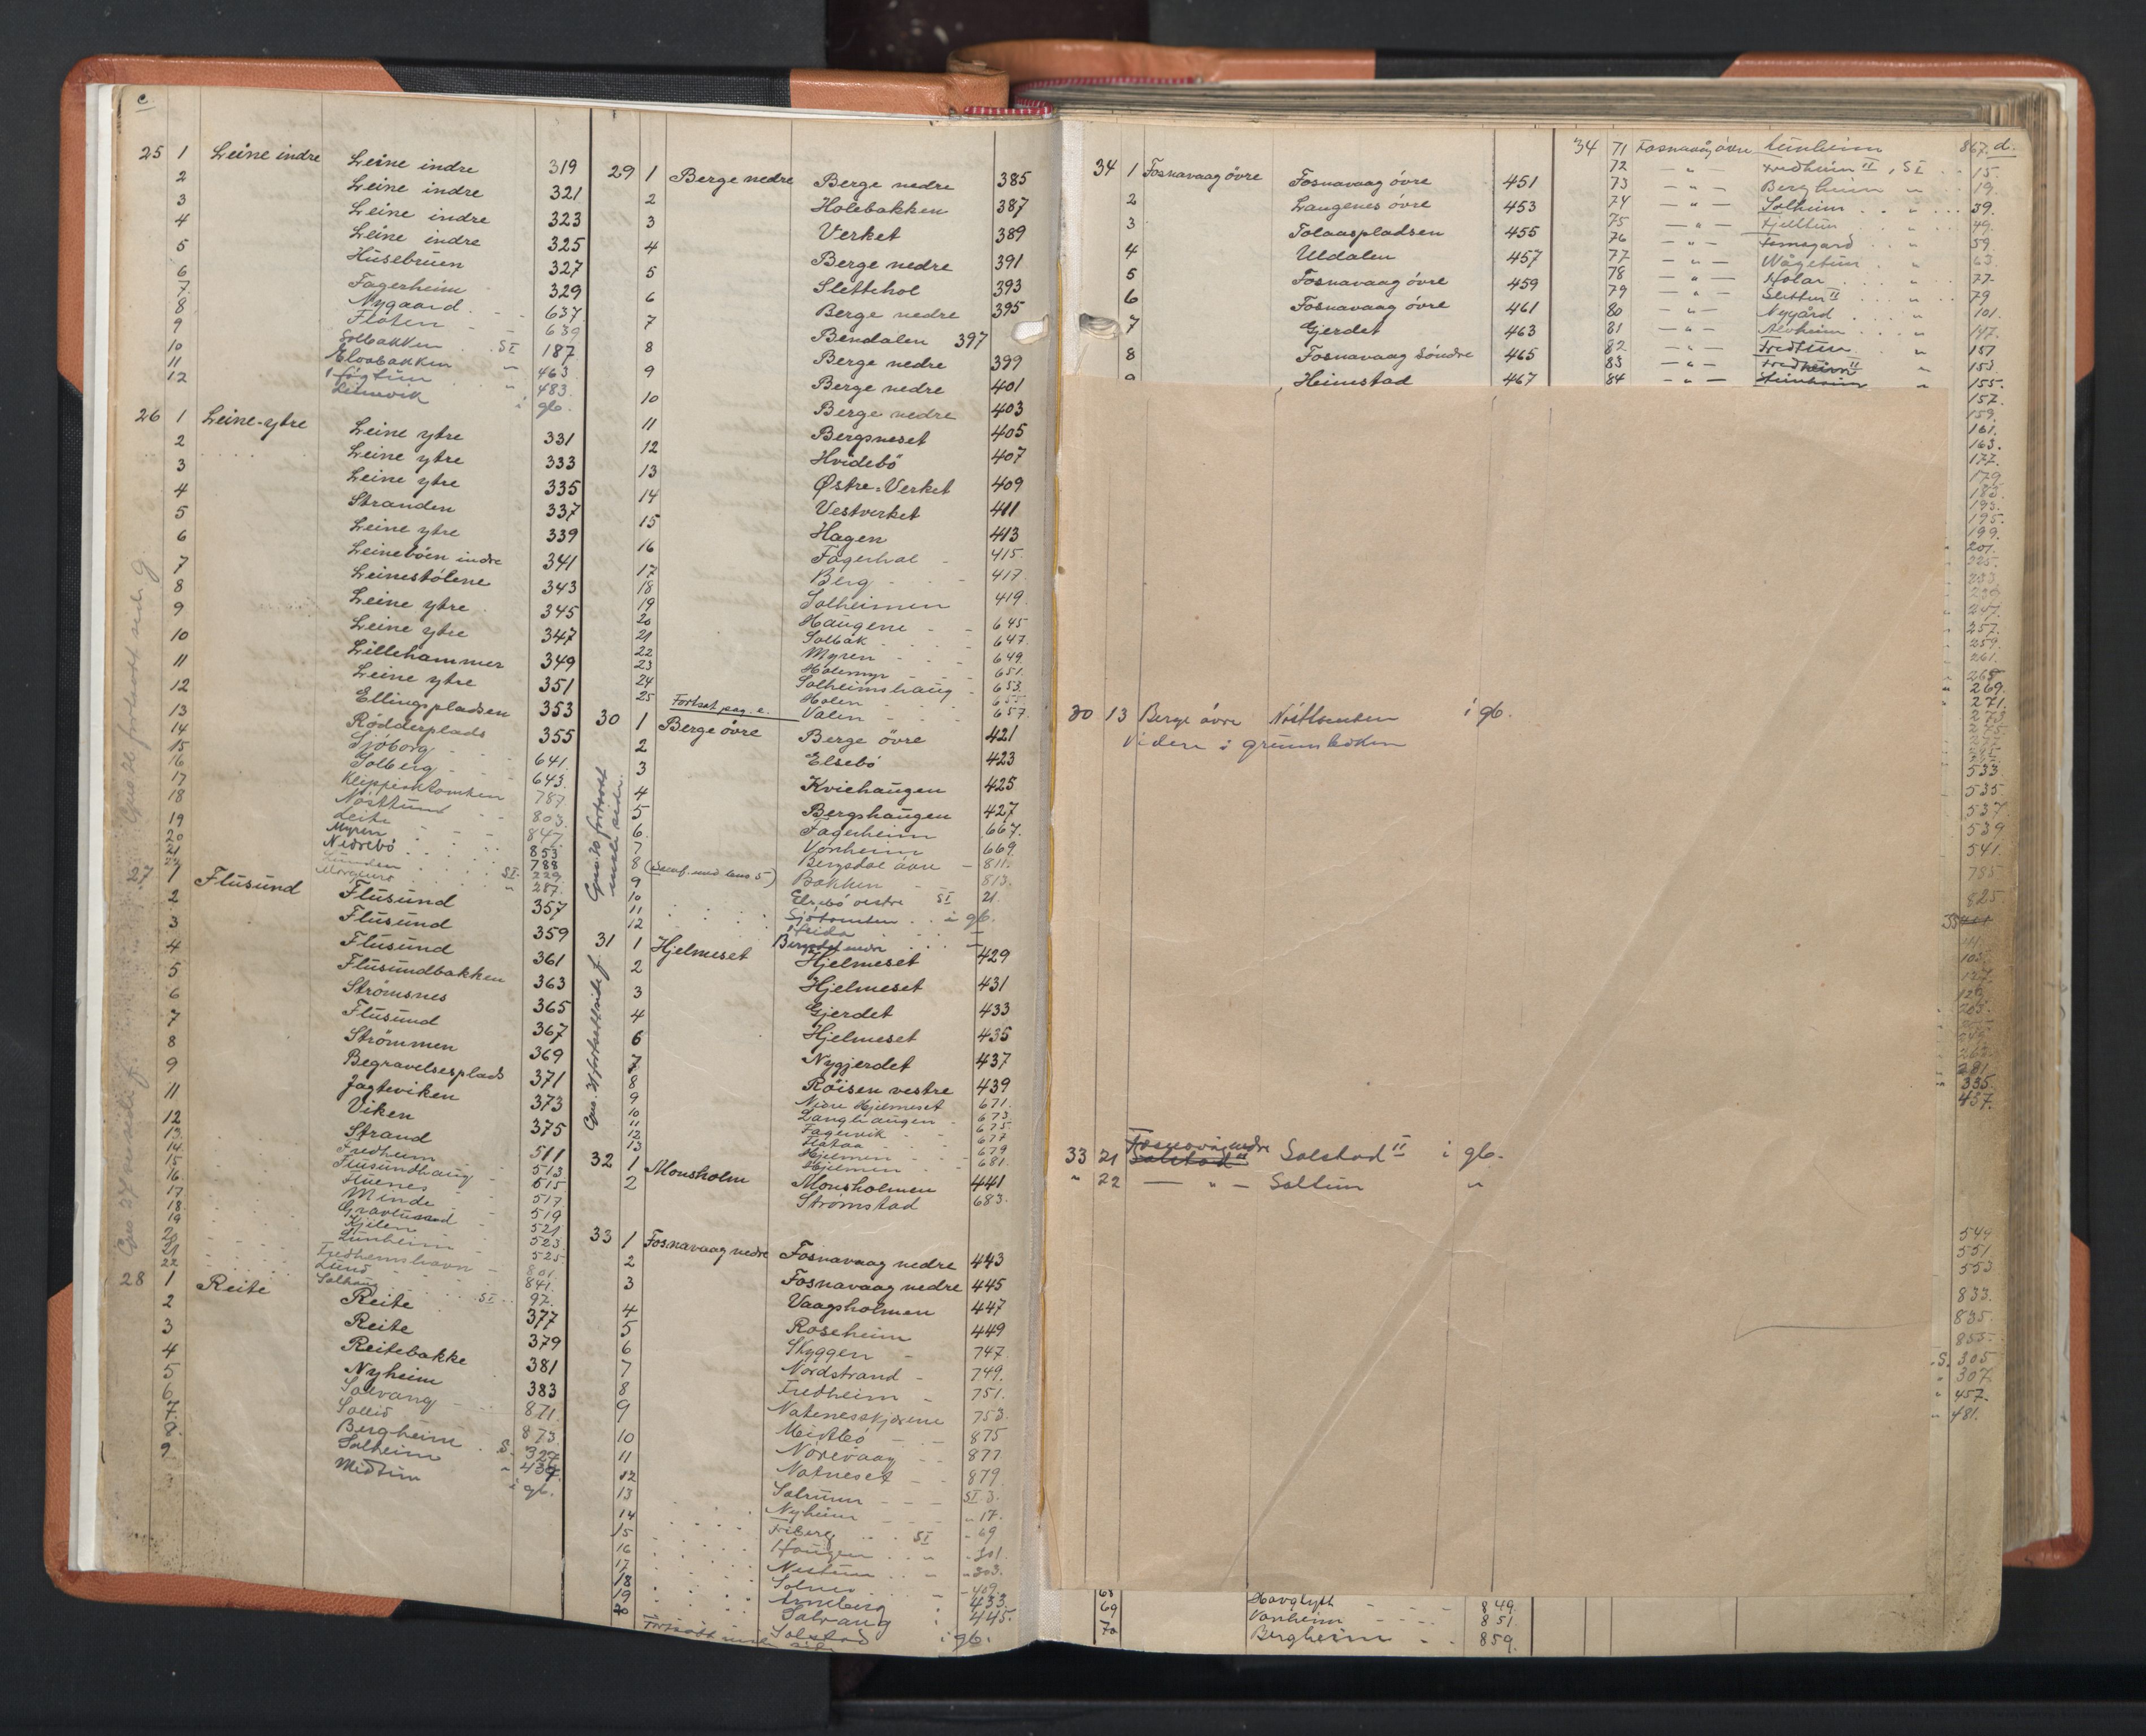 c
25 1 Leine indre Leine indre 319
2 Leine indre 321
3 Leine indre 323
4 Leine indre 325
5 Husebruen 327
6 Fagerheim 329
7 Nygaard 637
8 Floten 639
9 Solbakken SI 187
10 Elvabakken " 463
11 Høgtun " 483
12 Leinevik i gb.
26 1 Leine-ytre Leine ytre 331
2 Leine ytre 333
3 Leine ytre 335
4 Stranden 337
5 Leine ytre 339
6 Leinebøen indre 341
7 Leinestølene 343
8 Leine ytre 345
9 Leine ytre 347
10 Lillehammer 349
11 Leine ytre 351
12 Ellingspladsen 353
13 Rødderplads 355
14 Sjøborg 641.
15 Solberg 643.
16 Kleppestomten 787.
17 Nøsttun 803.
18 Leite 847.
19 Myren 853
20 Nedrebø 788
21 Lunden SI 229
22 " 287.
27 1 Flusund Flusund 357
2 Flusund 359
3 Flusund 361
4 Flusundbakken 363
5 Strømsnes 365
6 Flusund 367
7 Strømmen 369
8 Begravelsesplads 371
9 Jagteviken 373
11 Viken 375
12 Strand 511
13 Fredheim 513
14 Flusundhaug 515
15 Fluenes 517
16 Minde 519
17 521
18 Kjilen 523
19 Lunheim 525
20 Fredheimshavn 801.
21 Lund 841.
22 Solhaug SI 97.
28 1 Reite Reite 377
2 Reite 379
3 Reitebakke 381
4 Nyheim 383
5 Solvang 871.
6 Sollid 873.
7 Bergheim S. 327
8 Solheim " 437.
9 Midtun i gb.
29 1 Berge nedre Berge nedre 385
2 Holebakken 387
3 Verket 389
4 Berge nedre 391
5 Slettehol 393
6 Berge nedre 395
7 Bendalen 397
8 Berge nedre 399
9 Berge nedre 401
10 Berge nedre 403
11 Bergsneset 405
12 Hvidebø 407
13 Østre-Verket 409
14 Vestverket 411
15 Hagen 413
16 Fagerhol 415.
17 Berg 417.
18 Solheimen 419.
19 Haugene 645
20 Solbak 647.
21 Myren 649.
22 Holemyr 651.
23 Solheimshaug 653.
24 Holen 655.
25 Fortsat pag. e. Valen 657.
30 1 Berge øvre Berge øvre 421
2 Elsebø 423
3 Kviehaugen 425
4 Bergshaugen 427
5 Fagerheim 667.
6 Vonheim 669.
7 Bergsdal øvre 811.
8 (Samf. med bns 5) Bakken 813.
9 Elsebø vestre SI 21.
10 Sjøtomten i gb.
11 Heida
12 Bergsdal nedre
31 1 Hjelmeset Hjelmeset 429
2 Hjelmeset 431
3 Gjerdet 433
4 Hjelmeset 435
6 Nygjerdet 437
7 Røisen vestre 439
8 Nedre Hjelmeset 671.
9 Langhaugen 673.
10 Fagervik 675
11 Flataa 677
12 Hjelmen 679
13 Hjelmen 681.
32 1 Monsholm Monsholmen 441
2 Strømstad 683.
33 1 Fosnavaag nedre Fosnavaag nedre 443
2 Fosnavaag nedre 445
3 Vaagsholmen 447
4 Roseheim 449
5 Skyggen 747.
6 Nordstrand 749.
7 Fredheim 751.
8 Natenesskjærene 753.
9 Midtbø 875
10 Norevaag 877
11 Natneset 879
12 Solrunn SI 3.
13 Nyheim " 17.
14 Friberg SI " 69
15 Haugen " 301.
16 Nestun " 303.
17 Solnes 409.
18 Arneberg 433.
19 Solvang 445.
20 Solstad i gb.
Fortsatt neste side
Gns. 30 fortsatt neste side.
Gns. 31 fortset side f.
34 1 Fosnavaag øvre Fosnavaag øvre 451
2 Langenes øvre 453
3 Tolaaspladsen 455
4 Uldalen 457
5 Fosnavaag øvre 459
6 Fosnavaag øvre 461
7 Gjerdet 463
8 Fosnavaag søndre 465
9 Heimstad 467
34 71 Fosnavåg øvre Tunheim 867. d.
72 — " — Fredheim II, SI 15.
73 — " — Bergheim " 19.
74 — " — Solheim " 39.
75 — " — Fjelltun " 49.
76 — " — Tomsgard " 59
77 — " — Vågetun " 63.
78 — " — Holar " 77.
79 — " — Slettun II " 79
80 — " — Nygård " 101.
81 — " — Alvheim " 147.
82 — " — Fredtun " 151
83 — " — Fredheim II " 153.
84 — " — Steinheim " 155.
157.
159.
161.
163.
177.
179.
183.
193.
195.
199.
201.
225.
233.
239.
247.
257.
259.
261.
265
269.
271.
273
533.
535.
537.
539
541.
785
825.
281.
335.
457.
549
551.
553
833.
835.
855.
S. 305
" 307.
" 457.
" 481.
30 13 Berge øvre Nøsttomten i gb.
Videre i grunnboken
33 21 Fosnavåg nedre Solstad II i gb.
" 22 — " — Soltun "
68 Havglytt 849.
69 Vonheim 851.
70 Bergheim 859.